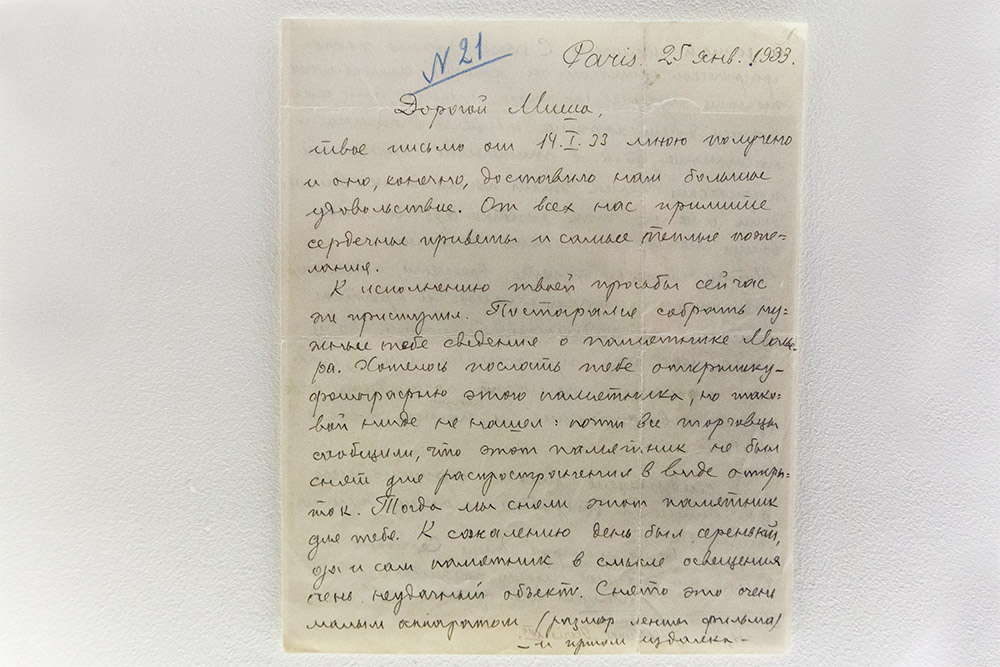 N 21
Paris. 25 янв. 1933.
Дорогой Миша,
твое письмо от 14.I.33 мною получено
и оно, конечно, доставило нам большое
удовольствие. От всех нас примите
сердечные приветы и самые теплые поже=
лания.
К исполнению твоей просьбы сейчас
же приступил. Постарался собрать ну=
жные тебе сведения о памятнике Молье=
ра. Хотелось послать тебе открытку-
фотографию этого памятника, но тако=
вой нигде не нашел: почти все торговцы
сообщили, что этот памятник не был
снят для распространения в виде откры=
ток. Тогда мы сняли этот памятник
для тебя. К сожалению день был серенький,
да и сам памятник в смысле освещения
очень неудачный объект. Снято это очень
малым аппаратом (размер ленты фильма)
- и притом издалека -